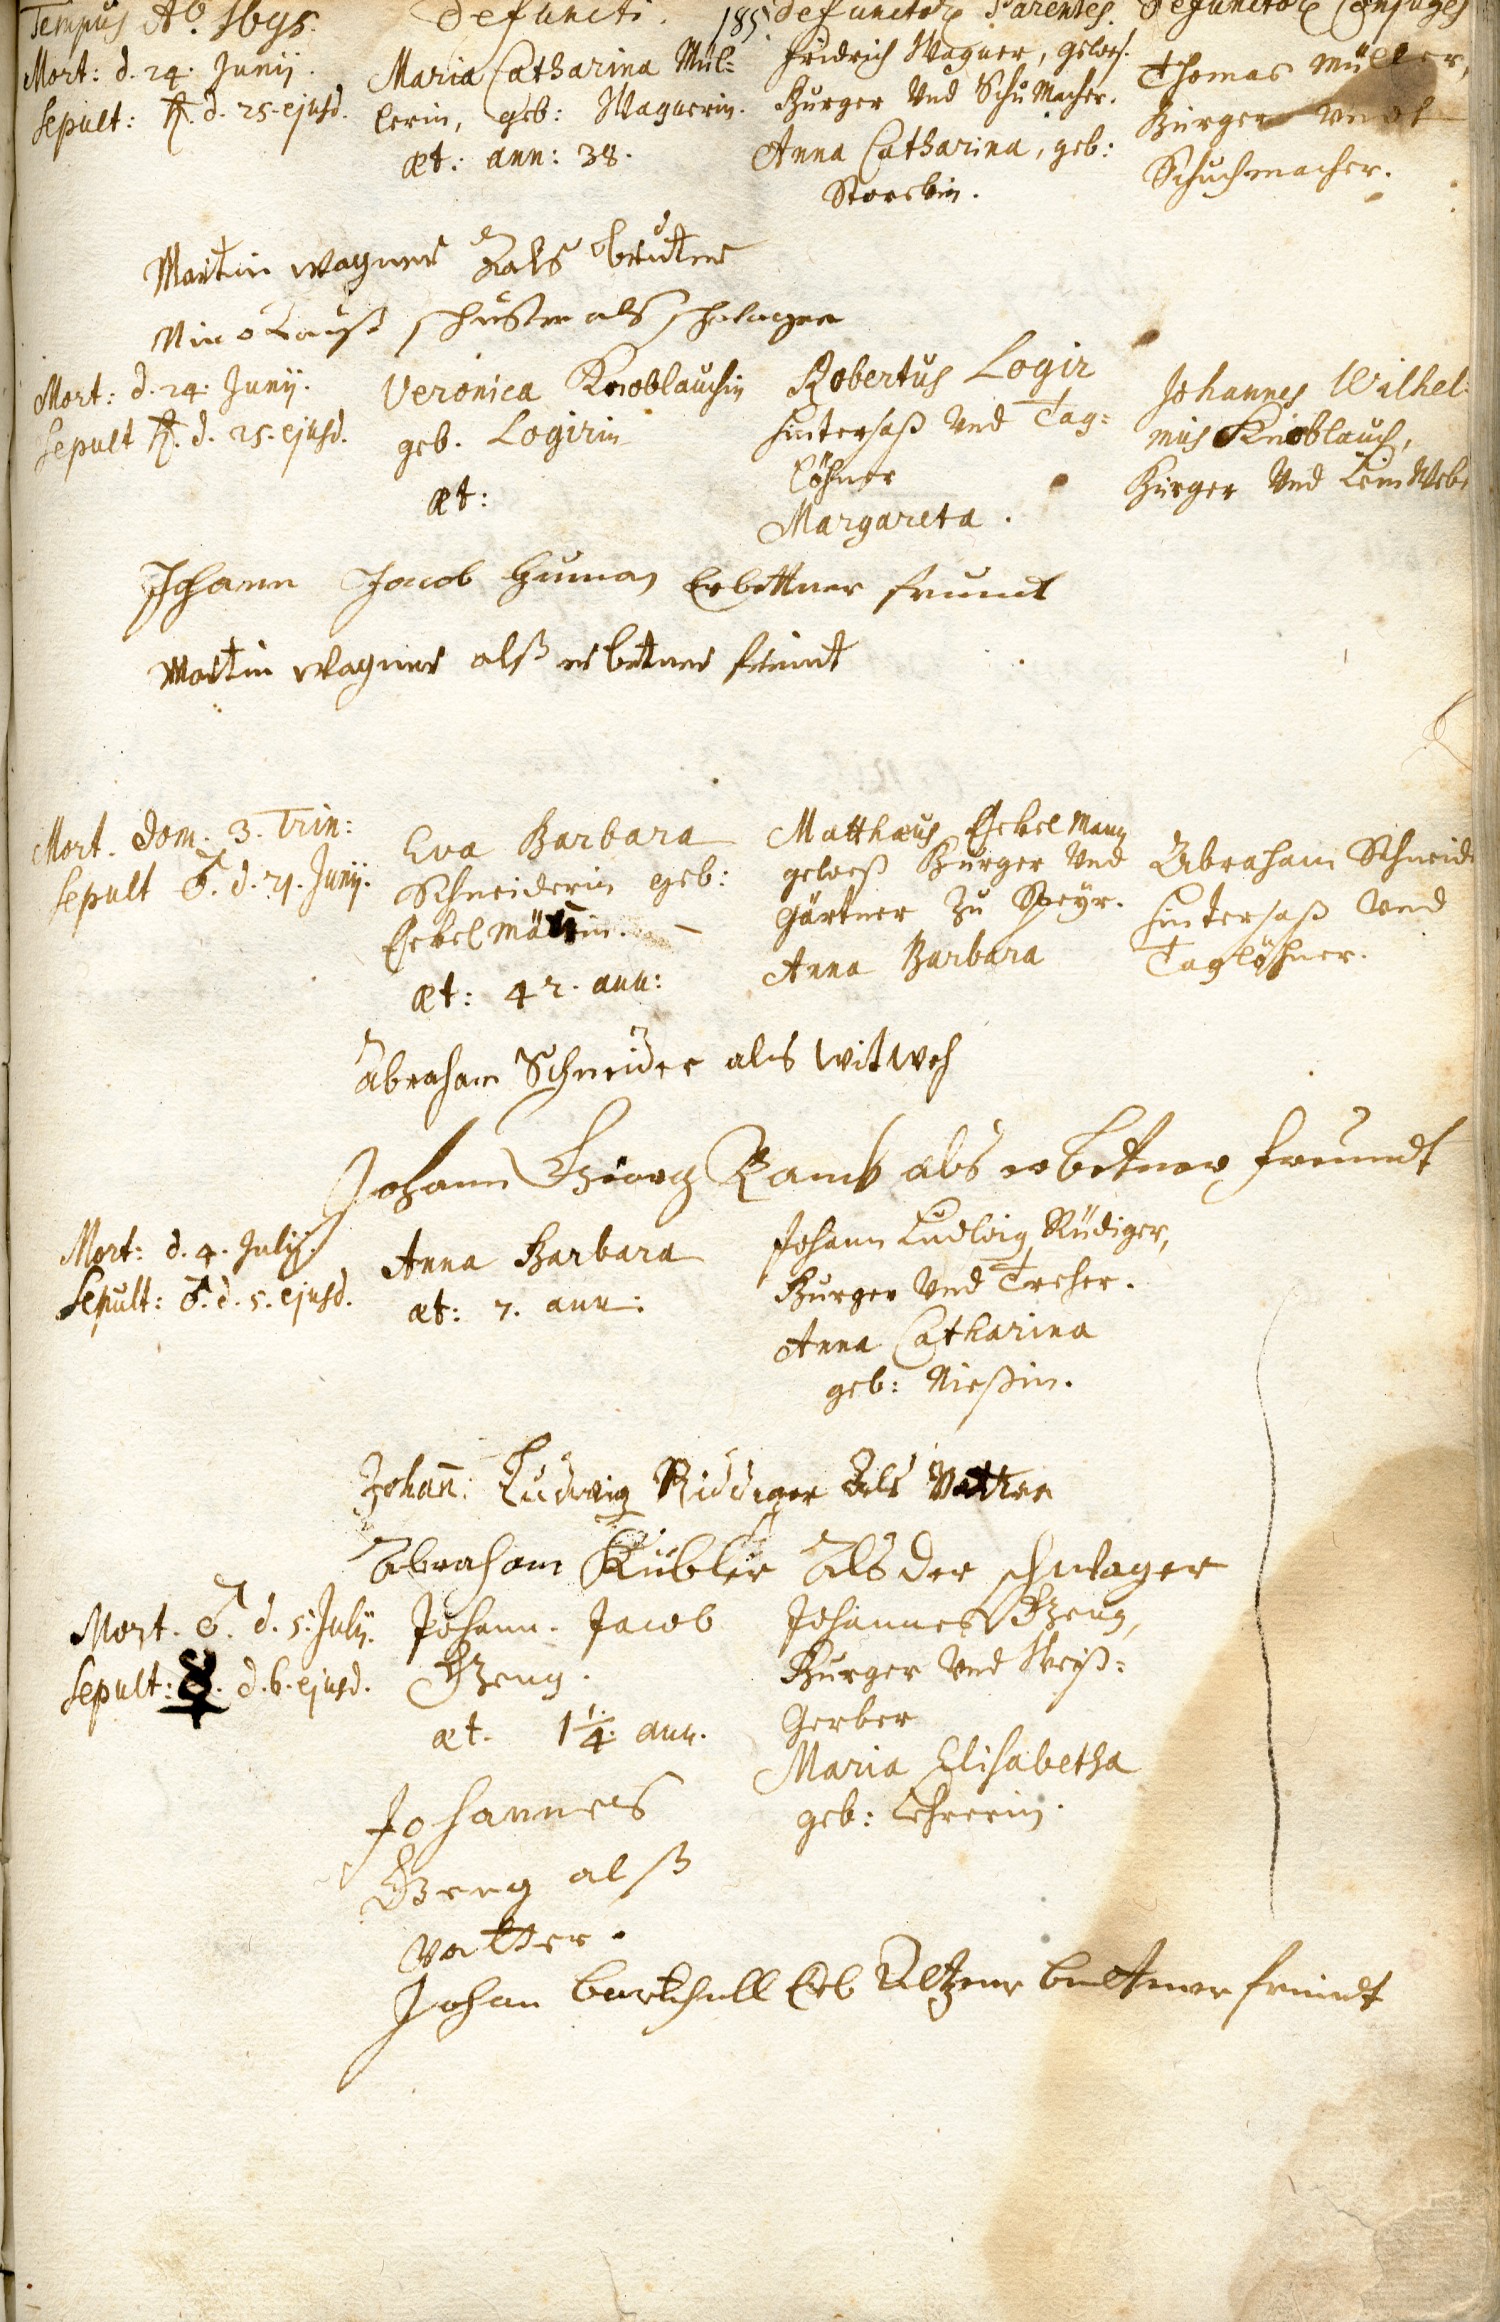 Tempus Aō. 1695.
Defuncti.
185.
Defunctor. Parentes.
Defunctor. Conjuges
Mort: d. 24. Junij.
Sepult: ♄. d. 25. ejusd.
Maria Catharina Mül-
lerin, geb: Wagnerin.
æt: ann: 38.
Fridrich Wagner, gewes.
Burger Und SchuMacher.
Anna Catharina, geb:
Storckin.
Thomas Müller,
Burger Undt
Schuchmacher.
Martin wagner Als bruter
Nicolauß schuster als schwager
Mort: d. 24. Junij.
Sepult ♄. d. 25. ejusd.
Veronica Knoblauchin
geb. Logirin
æt:
Robertus Logir
Hintersaß Und Tag-
löhner
Margareta.
Johannes Wilhel-
mus Knoblauch,
Burger Und LeinWeb
Johann Jacob Human Erbettner frundt
Martin Wagner alß erbetner freindt
Mort. Dom. 3. Trin:
Sepult ♂. d. 21. Junij.
Eva Barbara
Schneiderin geb:
æt: 42. ann:
Matthæus
geweß Burger Und
Gärtner zu Speyr.
Anna Barbara
Abraham Schneid
Hintersaß Und
Taglöhner.
Abraham Schneider als witweh
Johann Georg als erbetner freundt
Mort: d. 4. Julij.
Sepult: ♂. d. 5. ejusd.
Anna Barbara
æt: 7. ann:
Johann Ludwig Rüdiger,
Burger Und Treher.
Anna Catharina
geb: Nießin.
Johañ: Ludwig Riddiger Als Vatter
Abraham Kübler Als der schwager
Mort. ♂. d. 5. Julij.
Sepult: ☿. d. 6. ejusd.
Johann. Jacob
Gzeng.
æt. 1 1/4. ann.
Johannes Gzeng,
Burger Und Weiß-
Gerber
Maria Elisabetha
geb: Lehrerin.
Johannes
Gzeng alß
vatter.
Johan freindt